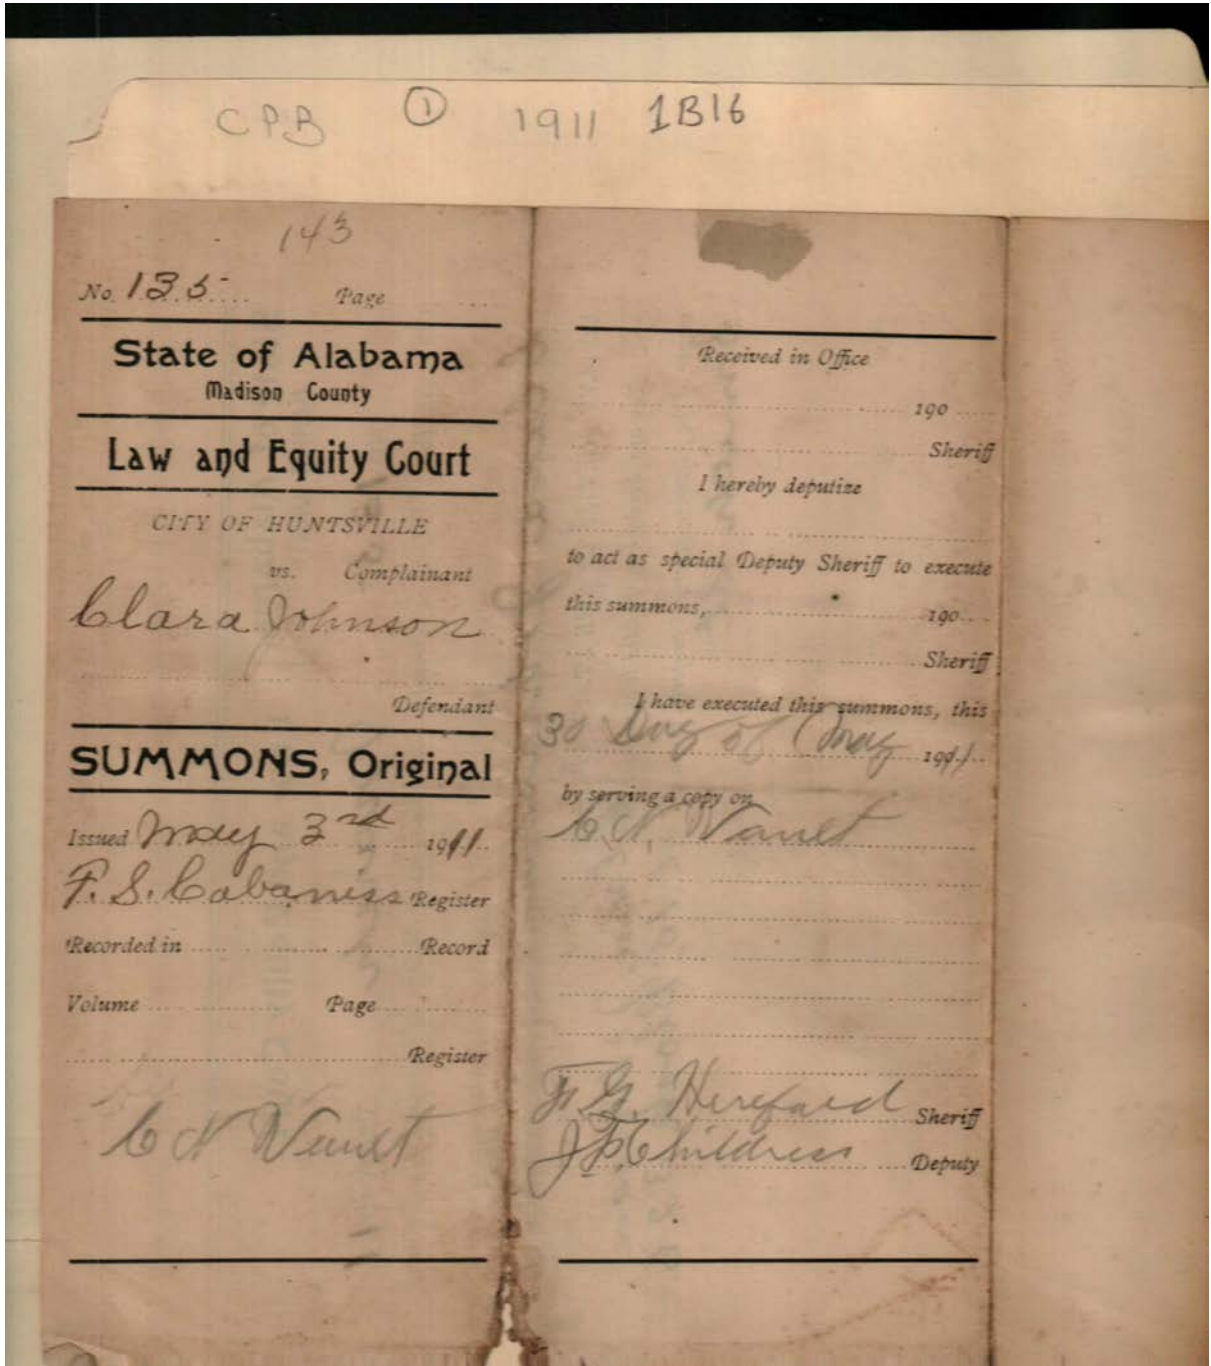 CPB ① 1911 1B16
143
No. 135 Page
State of Alabama
Madison County
Law and Equity Court
CITY OF HUNTSVILLE
vs. Complainant
Clara Johnson
Defendant
SUMMONS, Original
Issued May 3rd 1911
F. S. Cabaniss Register
Recorded in Record
Volume Page
Register
C N
Received in Office
190
Sheriff
I hereby deputize
to act as special Deputy Sheriff to execute
this summons, 190
Sheriff
I have executed this summons, this
30 Day of May 1911
by serving a copy on
C. N.
Hereford Sheriff
Childress Deputy